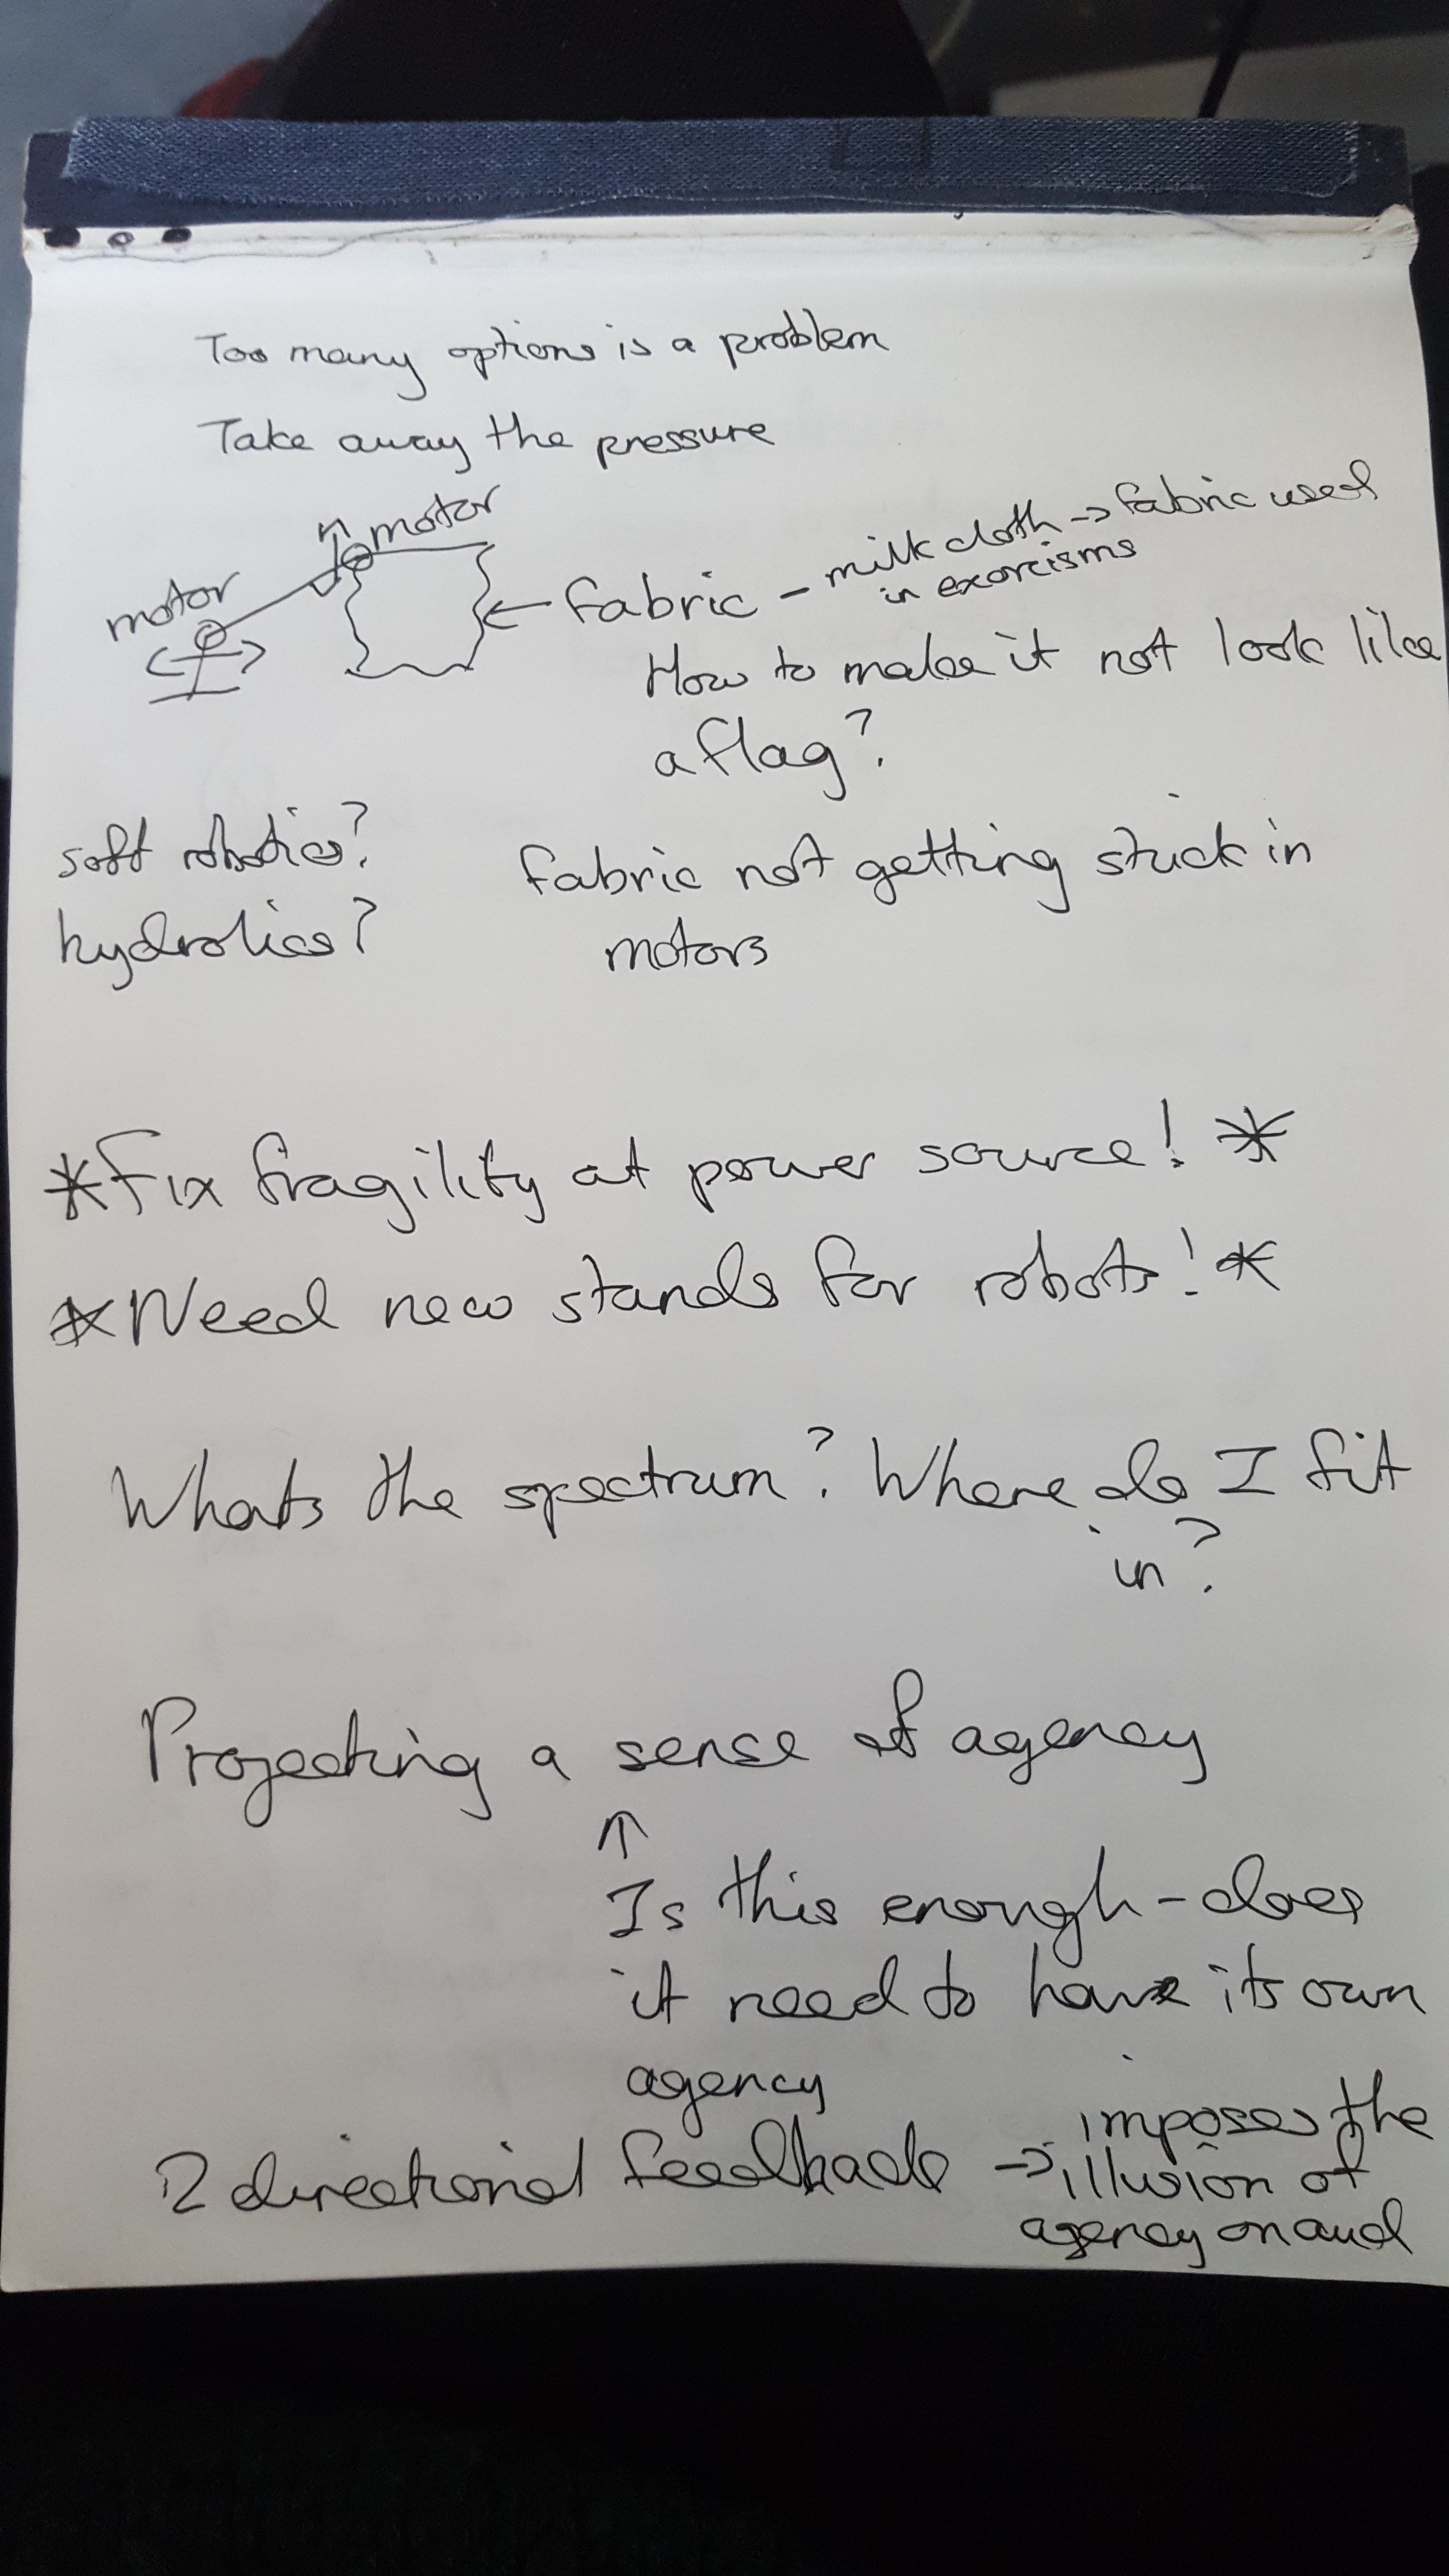 Too many options is a problem
Take away the pressure
motor
motor
fabric - milk cloth → fabric used
in exorcisms
How to make it not look like
a flag?
soft robotics?
hydrolics?
fabric not getting stuck in
motors
*Fix fragility at power source! *
*Need new stands for robots! *
Whats the spectrum? Where do I fit
in?
Projecting a sense of agency
↑
Is this enough - does
it need to have its own
agency
2 directional feedback → imposes the
illusion of
agency on aud